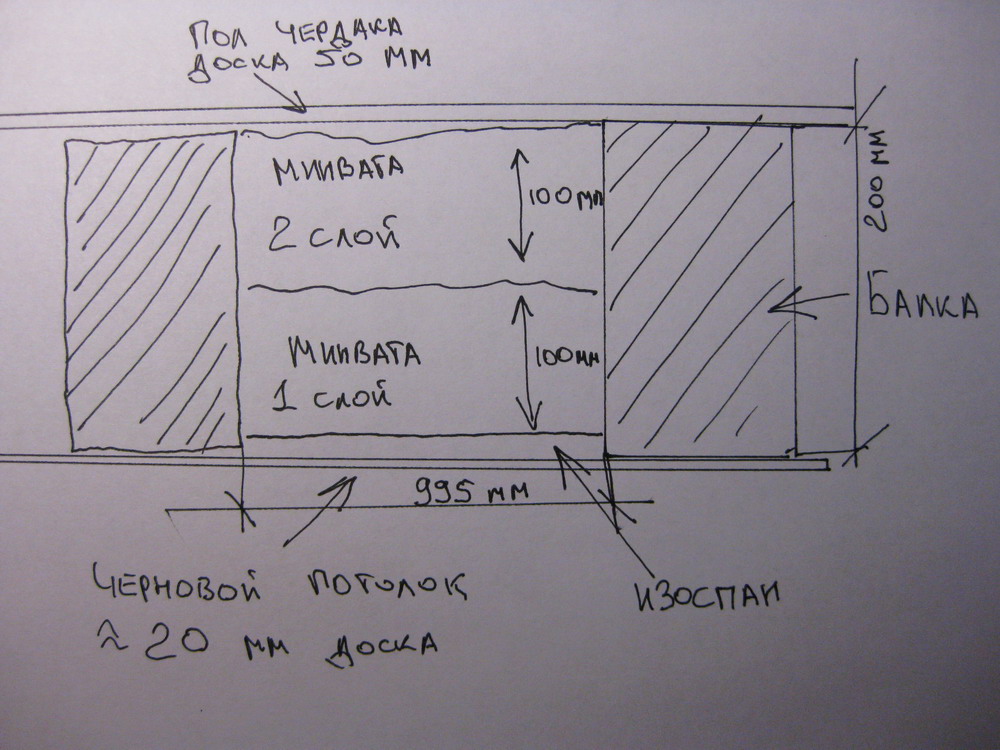 ПОЛ ЧЕРДАКА
ДОСКА 50 ММ
МИНВАТА
2 СЛОЙ
100мм
200 мм
БАЛКА
МИНВАТА
1 СЛОЙ
100мм
995 мм
ЧЕРНОВОЙ ПОТОЛОК
≈ 20 мм ДОСКА
ИЗОСПАН